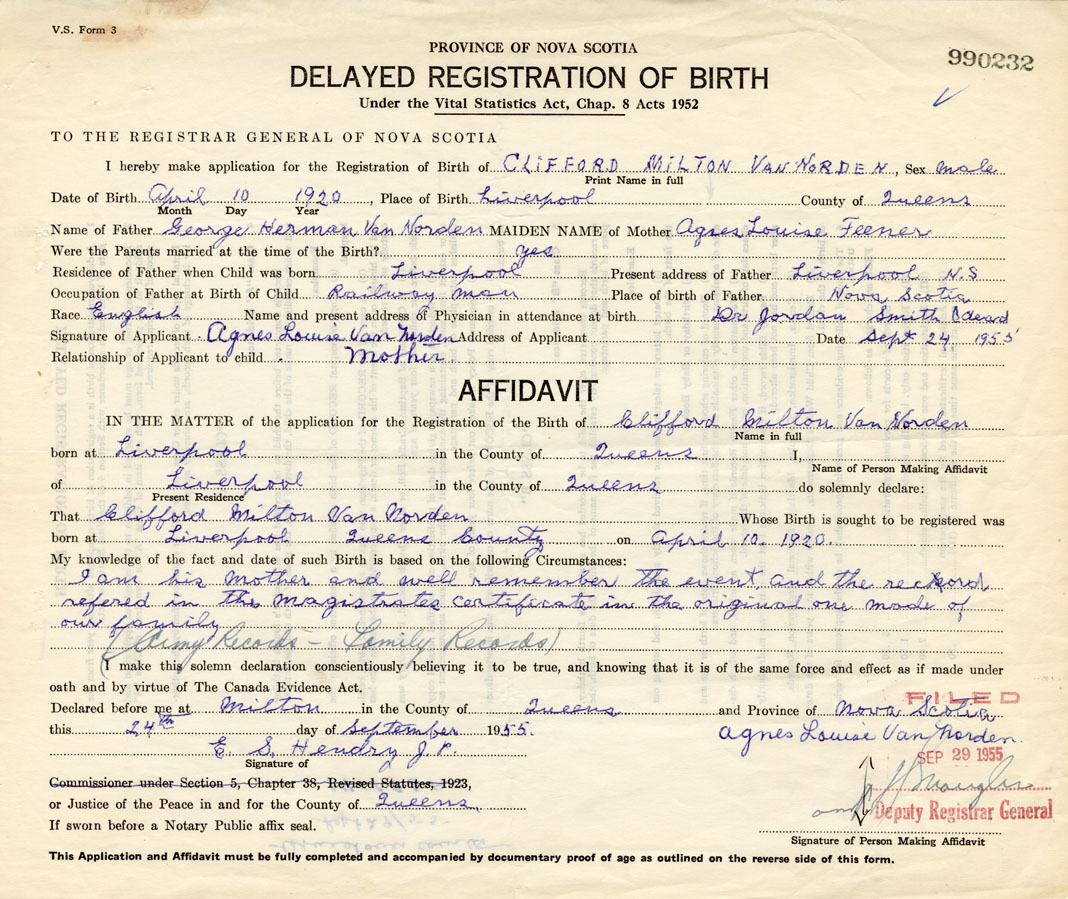 V.S. Form 3
PROVINCE OF NOVA SCOTIA
990232
DELAYED REGISTRATION OF BIRTH
Under the Vital Statistics Act, Chap. 8 Acts 1952
TO THE REGISTRAR GENERAL OF NOVA SCOTIA
I hereby make application for the Registration of Birth of CLIFFORD MILTON VAN NORDEN, Sex male
Print Name in full
Date of Birth April 10 1920, Place of Birth Liverpool County of Queens
Month Day Year
Name of Father George Herman Van Norden MAIDEN NAME of Mother Agnes Louise Feener
Were the Parents married at the time of the Birth? yes
Residence of Father when Child was born Liverpool Present address of Father Liverpool N.S
Occupation of Father at Birth of Child Railway man Place of birth of Father Nova Scotia
Race English Name and present address of Physician in attendance at birth Dr Jordan Smith
Signature of Applicant Agnes Louise Van Norden Address of Applicant Date Sept 24 1955
Relationship of Applicant to child Mother
AFFIDAVIT
IN THE MATTER of the application for the Registration of the Birth of Clifford Milton Van Norden
Name in full
born at Liverpool in the County of Queens I,
Name of Person Making Affidavit
of Liverpool in the County of Queens do solemnly declare:
Present Residence
That Clifford Milton Van Norden Whose Birth is sought to be registered was
born at Liverpool Queens County on April 10. 1920.
My knowledge of the fact and date of such Birth is based on the following Circumstances:
I am his Mother and well remember the event, and the record
refered in the magistrates certificate in the original one made of
our family
(Army Records - Family Records)
I make this solemn declaration conscientiously believing it to be true, and knowing that it is of the same force and effect as if made under
oath and by virtue of The Canada Evidence Act.
FILED
Declared before me at Milton in the County of Queens and Province of Nova Scotia
this 24th day of September 1955.
Agnes Louise Van Norden.
E. S. Hendry J.P.
SEP 29 1955
Signature of
Commissioner under Section 5, Chapter 38, Revised Statutes, 1923,
or Justice of the Peace in and for the County of Queens,
Deputy Registrar General
If sworn before a Notary Public affix seal.
Signature of Person Making Affidavit
This Application and Affidavit must be fully completed and accompanied by documentary proof of age as outlined on the reverse side of this form.